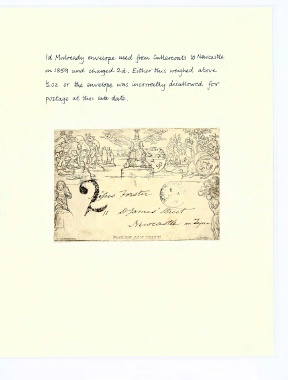 1d Mulready envelope used from Cullercoats to Newcastle
in 1859 and charged 2d. Either this weighed above
½oz or the envelope was incorrectly disallowed for
postage at this late date.
2
Forster
11 St James' Street
Newcastle on Tyne